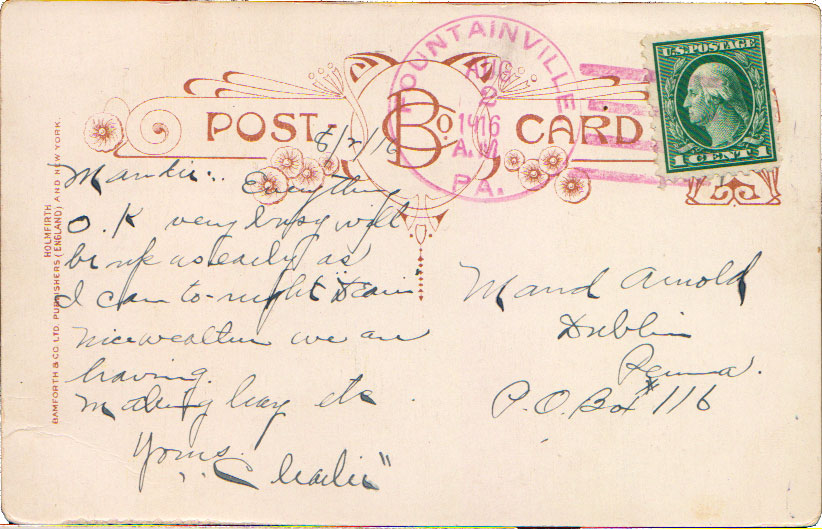 FOUNTAINVILLE
AUG
2
1916
A.M.
PA.
U.S. POSTAGE
1 CENT 1
POST B Co. CARD
8/2/16
Maudie:. Everything
O.K very busy will
be up as early as
I can to-night
nice weather we are
having.
Making hay etc.
Yours.
"Charlie"
Maud Arnold
Dublin
Penna.
P.O. Box #116
BAMFORTH & CO. LTD. PUBLISHERS (ENGLAND) AND NEW YORK.
HOLMFIRTH